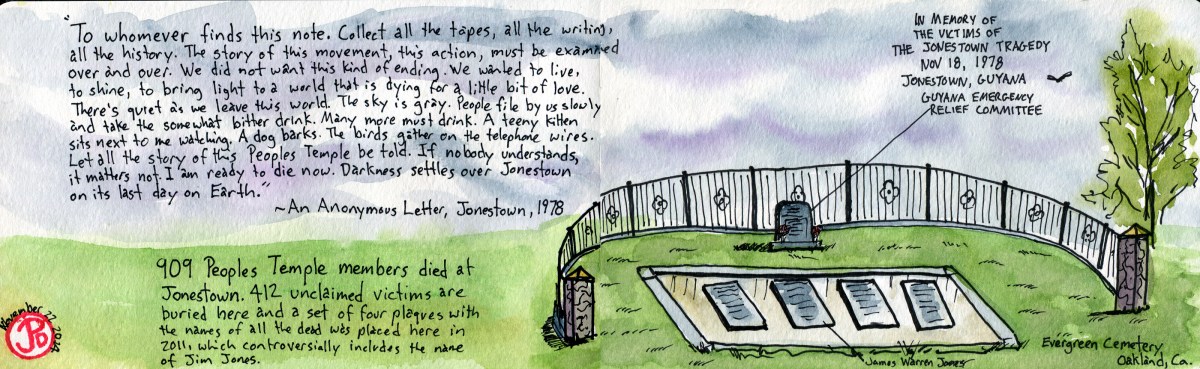 "To whomever finds this note. Collect all the tapes, all the writing,
all the history. The story of this movement, this action, must be examined
over and over. We did not want this kind of ending. We wanted to live,
to shine, to bring light to a world that is dying for a little bit of love.
There's quiet as we leave this world. The sky is gray. People file by us slowly
and take the somewhat bitter drink. Many more must drink. A teeny kitten
sits next to me watching. A dog barks. The birds gather on the telephone wires.
Let all the story of this Peoples Temple be told. If nobody understands,
it matters not. I am ready to die now. Darkness settles over Jonestown
on its last day on Earth."
~An Anonymous Letter, Jonestown, 1978
909 Peoples Temple members died at
Jonestown. 412 unclaimed victims are
buried here and a set of four plaques with
the names of all the dead was placed here in
2011, which controversially includes the name
of Jim Jones.
November 27 2024
JPD
IN MEMORY OF
THE VICTIMS OF
THE JONESTOWN TRAGEDY
NOV 18, 1978
JONESTOWN, GUYANA
GUYANA EMERGENCY
RELIEF COMMITTEE
James Warren Jones
Evergreen Cemetery,
Oakland, Ca.